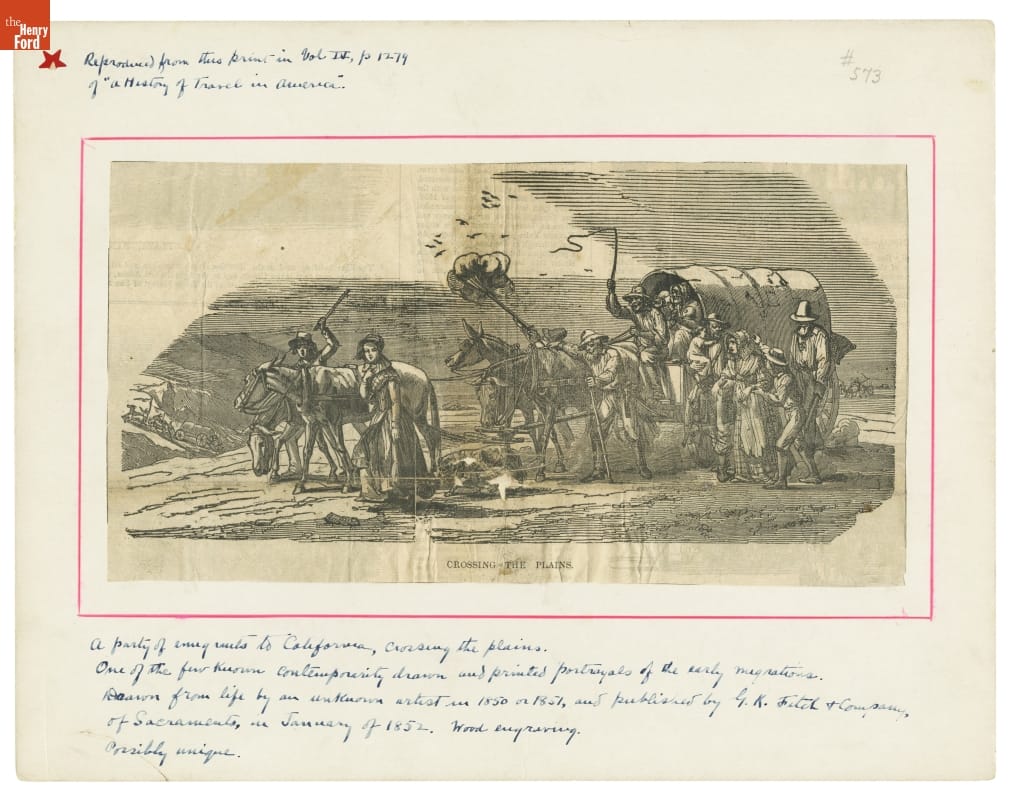 the
Henry
Ford
Reproduced from this print in Vol IV, p 1279
of "A History of Travel in America".
#573
CROSSING THE PLAINS.
A party of emigrants to California, crossing the plains.
One of the few known contemporarily drawn and printed portrayals of the early migrations.
Drawn from life by an unknown artist in 1850 or 1851, and published by G. K. Fitch & Company,
of Sacramento, in January of 1852. Wood engraving.
Possibly unique.